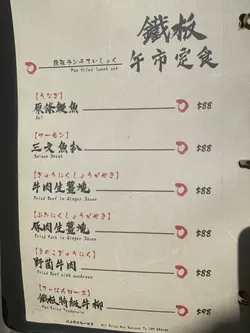 鐵板
午市定食
鉄板ランチていしょく
Pan fried lunch set
【うなぎ】
原條鰻魚 $88
Eel
【サーモン】
三文魚扒 $88
Salmon Steak
【ぎゅうにくしょうがやき】
牛肉生薑燒 $88
Fried Beef in Ginger Sauce
【ぶたにくしょうがやき】
豚肉生薑燒 $88
Fried Pork in Ginger Sauce
【きのこぎゅうにく】
野菌牛肉 $88
Fried Beef with mushroom
【てっぱんロース】
鐵板特級牛柳 $98
Pan Fried Tenderloin
All Price Are Subject To 10% Charge